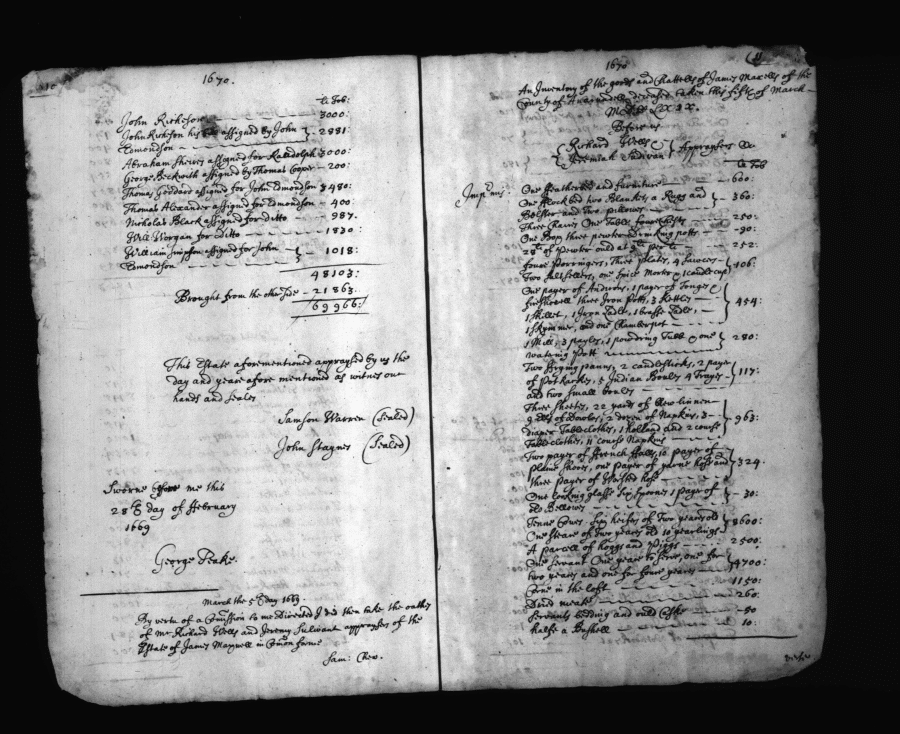 10
1670.
li Tob:
John Rickeson 3000:
John Rickeson his assigned by John
Edmondson } 2881:
Abraham assigned for Randolph 3000:
George Beckwith assigned by Thomas Cooper 200:
Thomas Goddard assigned for John Edmondson 3480:
Thomas Alexander assigned for Edmondson 400:
Nicholas Black assigned for ditto 987.
Will Worgan for ditto 1830:
William Simpson assigned for John
Edmondson } 1018:
48103:
Brought from the other side - 21863.
69966:
This Estate aforementioned appraysed by us the
day and yeare afore mentioned as witnes our
hands and seales
Samson Warren (sealed)
John Staynes (Sealed)
Sworne before me this
28th day of ffebruary
1669
George Peake.
March the 5th day 1669.
By vertu of a Comission to me Directed I did then take the oathes
of Mr. Richard Wells and Jeremy Sulivant appraysers of the
Estate of James Maxwell in Comon forme
Sam: Chew.
11
1670
An Inventory of the goods and Chattells of James Maxells of the
County of deceased taken this fifth of March
Before us
{ Richard Wells
Jeremiah Sulivan } Appraysers
li Tob
Impnis: One ffeatherbed and furniture 600:
One fflockbed two Blanketts a Rugg and
Bolster and Two pillowes } 360:
Three Chairs One Table four Chests 250:
One three pewter Drinking potts 90:
28 of Pewter ould at 9 252:
foure Porringers, Three plates, 4 Sawcers
Two saltsellers, one Spice Mortar 1 Candlecup } 106:
One payer of Andirons, 1 payer of Tonges
fireshovell three Iron Potts, 3 Kettles
1 Skillet, 1 Iron Ladle, 1 brasse Ladle,
1 Skymmer, and one Chamberpot } 454:
1 Mill, 3 payles, 1 powdring Tubb & one
watering Pott } 280:
Two frying panns, 2 candlesticks, 2 payer
of Pothookes, 5 Indian Boules 4 Trayes
and two small boules } 117:
Three Sheetes, 22 yards of linnen
9 ells of dowlas, 2 dozen of Napkins, 3
diaper Tablecloths, 1 holland and 2 course
Tablecloths, 11 course Napkins } 963:
Two payer of ffrench ffalls, 10 payer of
plaine shoes, one payer of yarne hose and
three payer of worsted hose } 324.
One looking glasse Six Spoones 1 payer of
old Bellowes } 30:
Tenne Cowes Six heifers of Two yeares old
One Steare of Two yeares old 10 yearlings } 8600:
A parcell of hoggs and Piggs 2500:
One servant One yeare to serve, one for
two yeares and one for foure yeares } 4700:
Corne in the loft 1150:
Dried meate 260.
Servants bedding and ould Caske 50
halfe a Bushell 10: